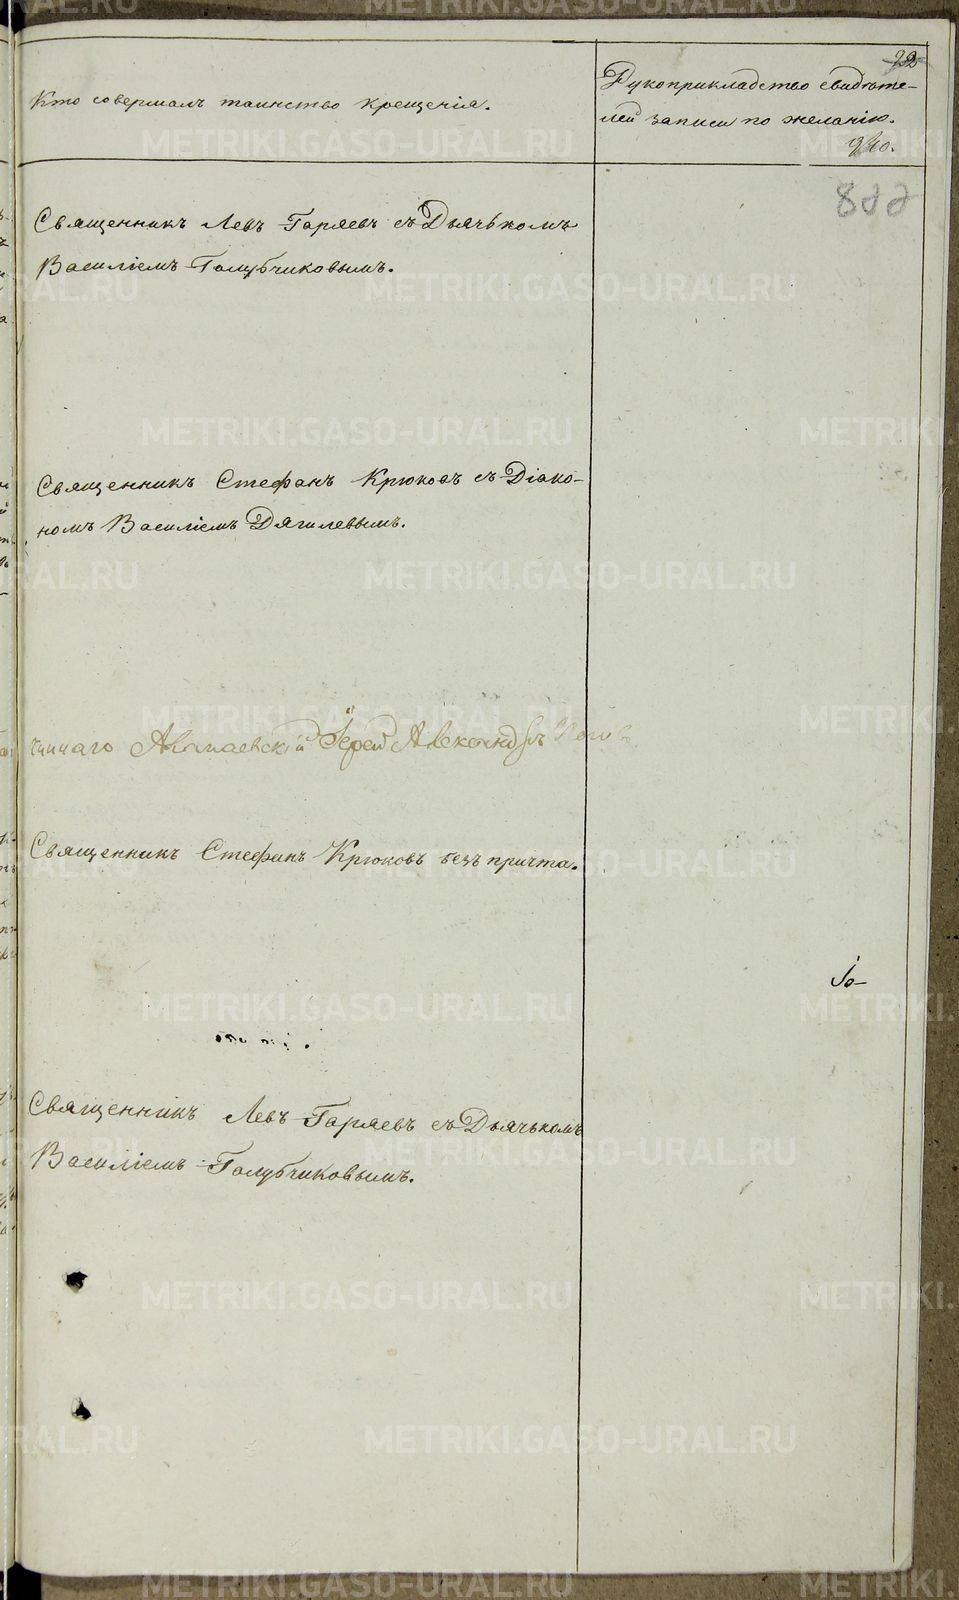 Кто совершалъ таинство крещенія.
Рукоприкладство свидѣте-
лей записи по желанію.
Священникъ Левъ Гаряевъ съ Дьячькомъ
Василіемъ Голубчиковымъ.
Священникъ Стефанъ Крюковъ съ Діако-
номъ Василіемъ Дягилевымъ.
Іерей Александръ
Священникъ Стефанъ Крюковъ безъ причта.
Священникъ Левъ Гаряевъ съ Дьячькомъ
Василіемъ Голубчиковымъ.
METRIKI.GASO-URAL.RU